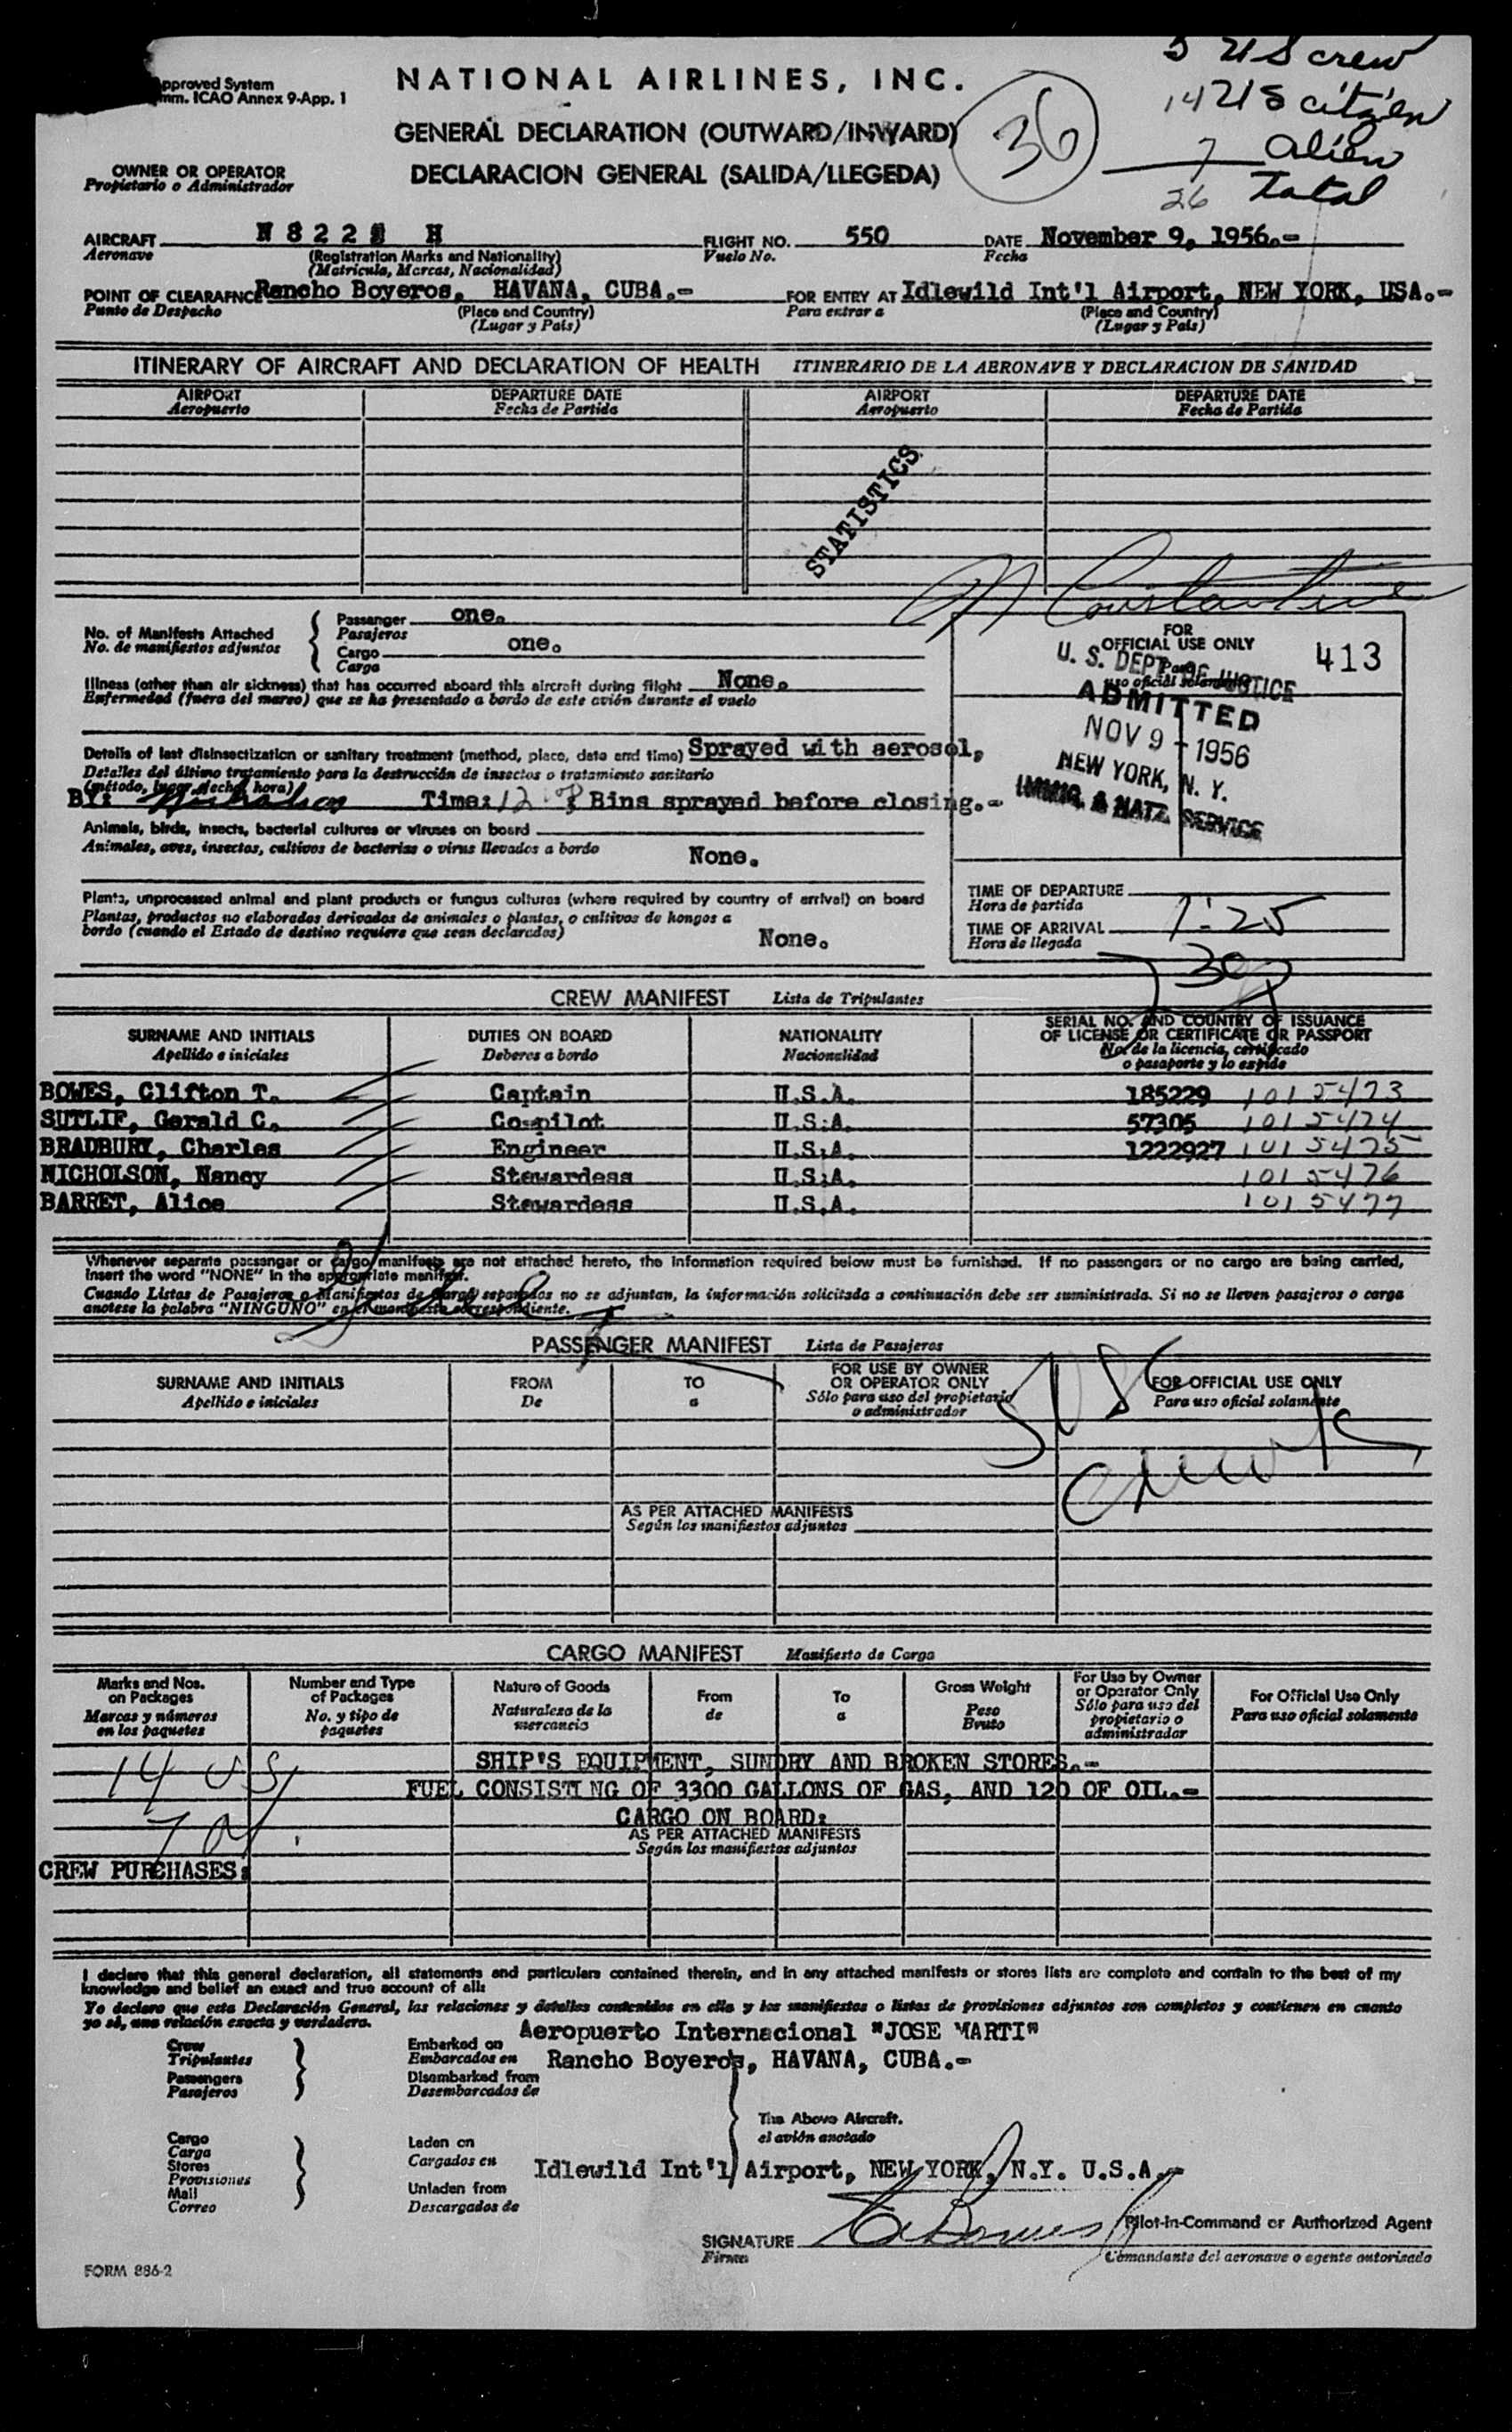 pproved System
mm. ICAO Annex 9-App. 1
NATIONAL AIRLINES, INC.
5 US crew
14 US citizen
7 alien
26 Total
36
GENERAL DECLARATION (OUTWARD/INWARD)
DECLARACION GENERAL (SALIDA/LLEGEDA)
OWNER OR OPERATOR
Propietario o Administrador
AIRCRAFT N 8 2 2 H FLIGHT NO. 550 DATE November 9, 1956.-
Aeronave (Registration Marks and Nationality) Vuelo No. Fecha
(Matricula, Marcas, Nacionalidad)
POINT OF CLEARAFNCE Rancho Boyeros, HAVANA, CUBA.- FOR ENTRY AT Idlewild Int'l Airport, NEW YORK, USA.-
Punto de Despacho (Place and Country) Para entrar a (Place and Country)
(Lugar y País) (Lugar y País)
ITINERARY OF AIRCRAFT AND DECLARATION OF HEALTH ITINERARIO DE LA AERONAVE Y DECLARACION DE SANIDAD
AIRPORT DEPARTURE DATE AIRPORT DEPARTURE DATE
Aeropuerto Fecha de Partida Aeropuerto Fecha de Partida
STATISTICS
N Constantine
No. of Manifests Attached
No. de manifiestos adjuntos
Passenger one.
Pasajeros
Cargo one.
Carga
FOR
OFFICIAL USE ONLY
Para
uso oficial solamente
413
U. S. DEPT. OF JUSTICE
ADMITTED
NOV 9 - 1956
NEW YORK, N. Y.
IMMIG. & NATZ. SERVICE
Illness (other than air sickness) that has occurred aboard this aircraft during flight None.
Enfermedad (fuera del mareo) que se ha presentado a bordo de este avión durante el vuelo
Details of last disinsectization or sanitary treatment (method, place, date and time) Sprayed with aerosol,
Detalles del último tratamiento para la destrucción de insectos o tratamiento sanitario
(método, lugar, fecha, hora)
BY: Nicholson Time: 12 Bins sprayed before closing.-
Animals, birds, insects, bacterial cultures or viruses on board
Animales, aves, insectos, cultivos de bacterias o virus llevados a bordo None.
Plants, unprocessed animal and plant products or fungus cultures (where required by country of arrival) on board
Plantas, productos no elaborados derivados de animales o plantas, o cultivos de hongos a
bordo (cuando el Estado de destino requiere que sean declarados) None.
TIME OF DEPARTURE
Hora de partida
TIME OF ARRIVAL 7:25
Hora de llegada
730
CREW MANIFEST Lista de Tripulantes
SURNAME AND INITIALS DUTIES ON BOARD NATIONALITY SERIAL NO. AND COUNTRY OF ISSUANCE
OF LICENSE OR CERTIFICATE OR PASSPORT
Apellido e iniciales Deberes a bordo Nacionalidad No. de la licencia, certificado
o pasaporte y lo expide
BOWES, Clifton T. Captain U.S.A. 185229 1015473
SUTLIF, Gerald C. Co-pilot U.S.A. 57305 1015474
BRADBURY, Charles Engineer U.S.A. 1222927 1015475
NICHOLSON, Nancy Stewardess U.S.A. 1015476
BARRET, Alice Stewardess U.S.A. 1015477
Whenever separate passenger or cargo manifests are not attached hereto, the information required below must be furnished. If no passengers or no cargo are being carried,
insert the word "NONE" in the appropriate manifest.
Cuando Listas de Pasajeros o Manifiestos de Carga separados no se adjuntan, la información solicitada a continuación debe ser suministrada. Si no se lleven pasajeros o carga
anotese la palabra "NINGUNO" en el manifiesto correspondiente.
PASSENGER MANIFEST Lista de Pasajeros
SURNAME AND INITIALS FROM TO FOR USE BY OWNER
OR OPERATOR ONLY FOR OFFICIAL USE ONLY
Apellido e iniciales De a Sólo para uso del propietario
o administrador Para uso oficial solamente
5 US
crew
AS PER ATTACHED MANIFESTS
Según los manifiestos adjuntos
CARGO MANIFEST Manifiesto de Carga
Marks and Nos.
on Packages
Marcas y números
en los paquetes
Number and Type
of Packages
No. y tipo de
paquetes
Nature of Goods
Naturaleza de la
mercancia
From
de
To
a
Gross Weight
Peso
Bruto
For Use by Owner
or Operator Only
Sólo para uso del
propietario o
administrador
For Official Use Only
Para uso oficial solamente
14 US
7 al.
SHIP'S EQUIPMENT, SUNDRY AND BROKEN STORES.-
FUEL CONSISTING OF 3300 GALLONS OF GAS, AND 120 OF OIL.-
CARGO ON BOARD:
AS PER ATTACHED MANIFESTS
Según los manifiestos adjuntos
CREW PURCHASES:
I declare that this general declaration, all statements and particulars contained therein, and in any attached manifests or stores lists are complete and contain to the best of my
knowledge and belief an exact and true account of all:
Yo declaro que esta Declaración General, las relaciones y detalles contenidos en ella y los manifiestos o listas de provisiones adjuntos son completos y contienen en cuanto
yo sé, una relación exacta y verdadera.
Aeropuerto Internacional "JOSE MARTI"
Crew
Tripulantes
Passengers
Pasajeros
Embarked on
Embarcados en Rancho Boyeros, HAVANA, CUBA.-
Disembarked from
Desembarcados de
The Above Aircraft.
el avión anotado
Cargo
Carga
Stores
Provisiones
Mail
Correo
Laden on
Cargados en
Idlewild Int'l Airport, NEW YORK, N.Y. U.S.A.-
Unladen from
Descargados de
SIGNATURE Bowes Pilot-in-Command or Authorized Agent
Firma Comandante del aeronave o agente autorizado
FORM 886-2